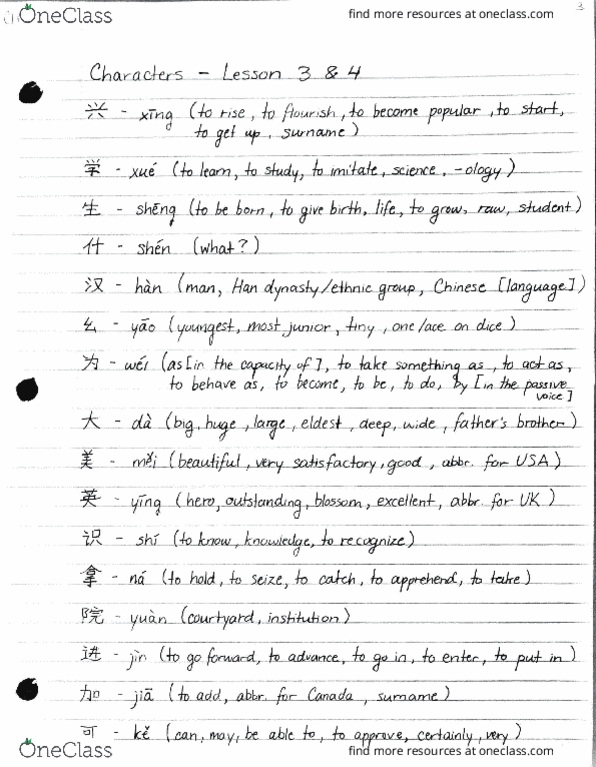 OneClass
find more resources at oneclass.com
3
Characters - Lesson 3 & 4
兴 - xīng (to rise, to flourish, to become popular, to start,
to get up, surname)
学 - xué (to learn, to study, to imitate, science, -ology)
生 - shēng (to be born, to give birth, life, to grow, raw, student)
什 - shén (what?)
汉 - hàn (man, Han dynasty/ethnic group, Chinese [language])
幺 - yāo (youngest, most junior, tiny, one/ace on dice)
为 - wéi (as [in the capacity of], to take something as, to act as,
to behave as, to become, to be, to do, by [in the passive
voice]
大 - dà (big, huge, large, eldest, deep, wide, father's brother)
美 - měi (beautiful, very satisfactory, good, abbr. for USA)
英 - yīng (hero, outstanding, blossom, excellent, abbr. for UK)
识 - shí (to know, knowledge, to recognize)
拿 - ná (to hold, to seize, to catch, to apprehend, to take)
院 - yuàn (courtyard, institution)
进 - jìn (to go forward, to advance, to go in, to enter, to put in)
加 - jiā (to add, abbr. for Canada, surname)
可 - kě (can, may, be able to, to approve, certainly, very)
OneClass
find more resources at oneclass.com